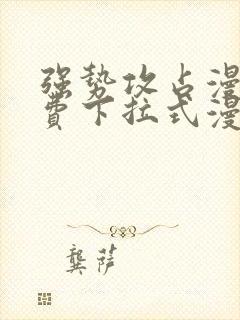 强势攻占漫
费下拉式漫
龚萨